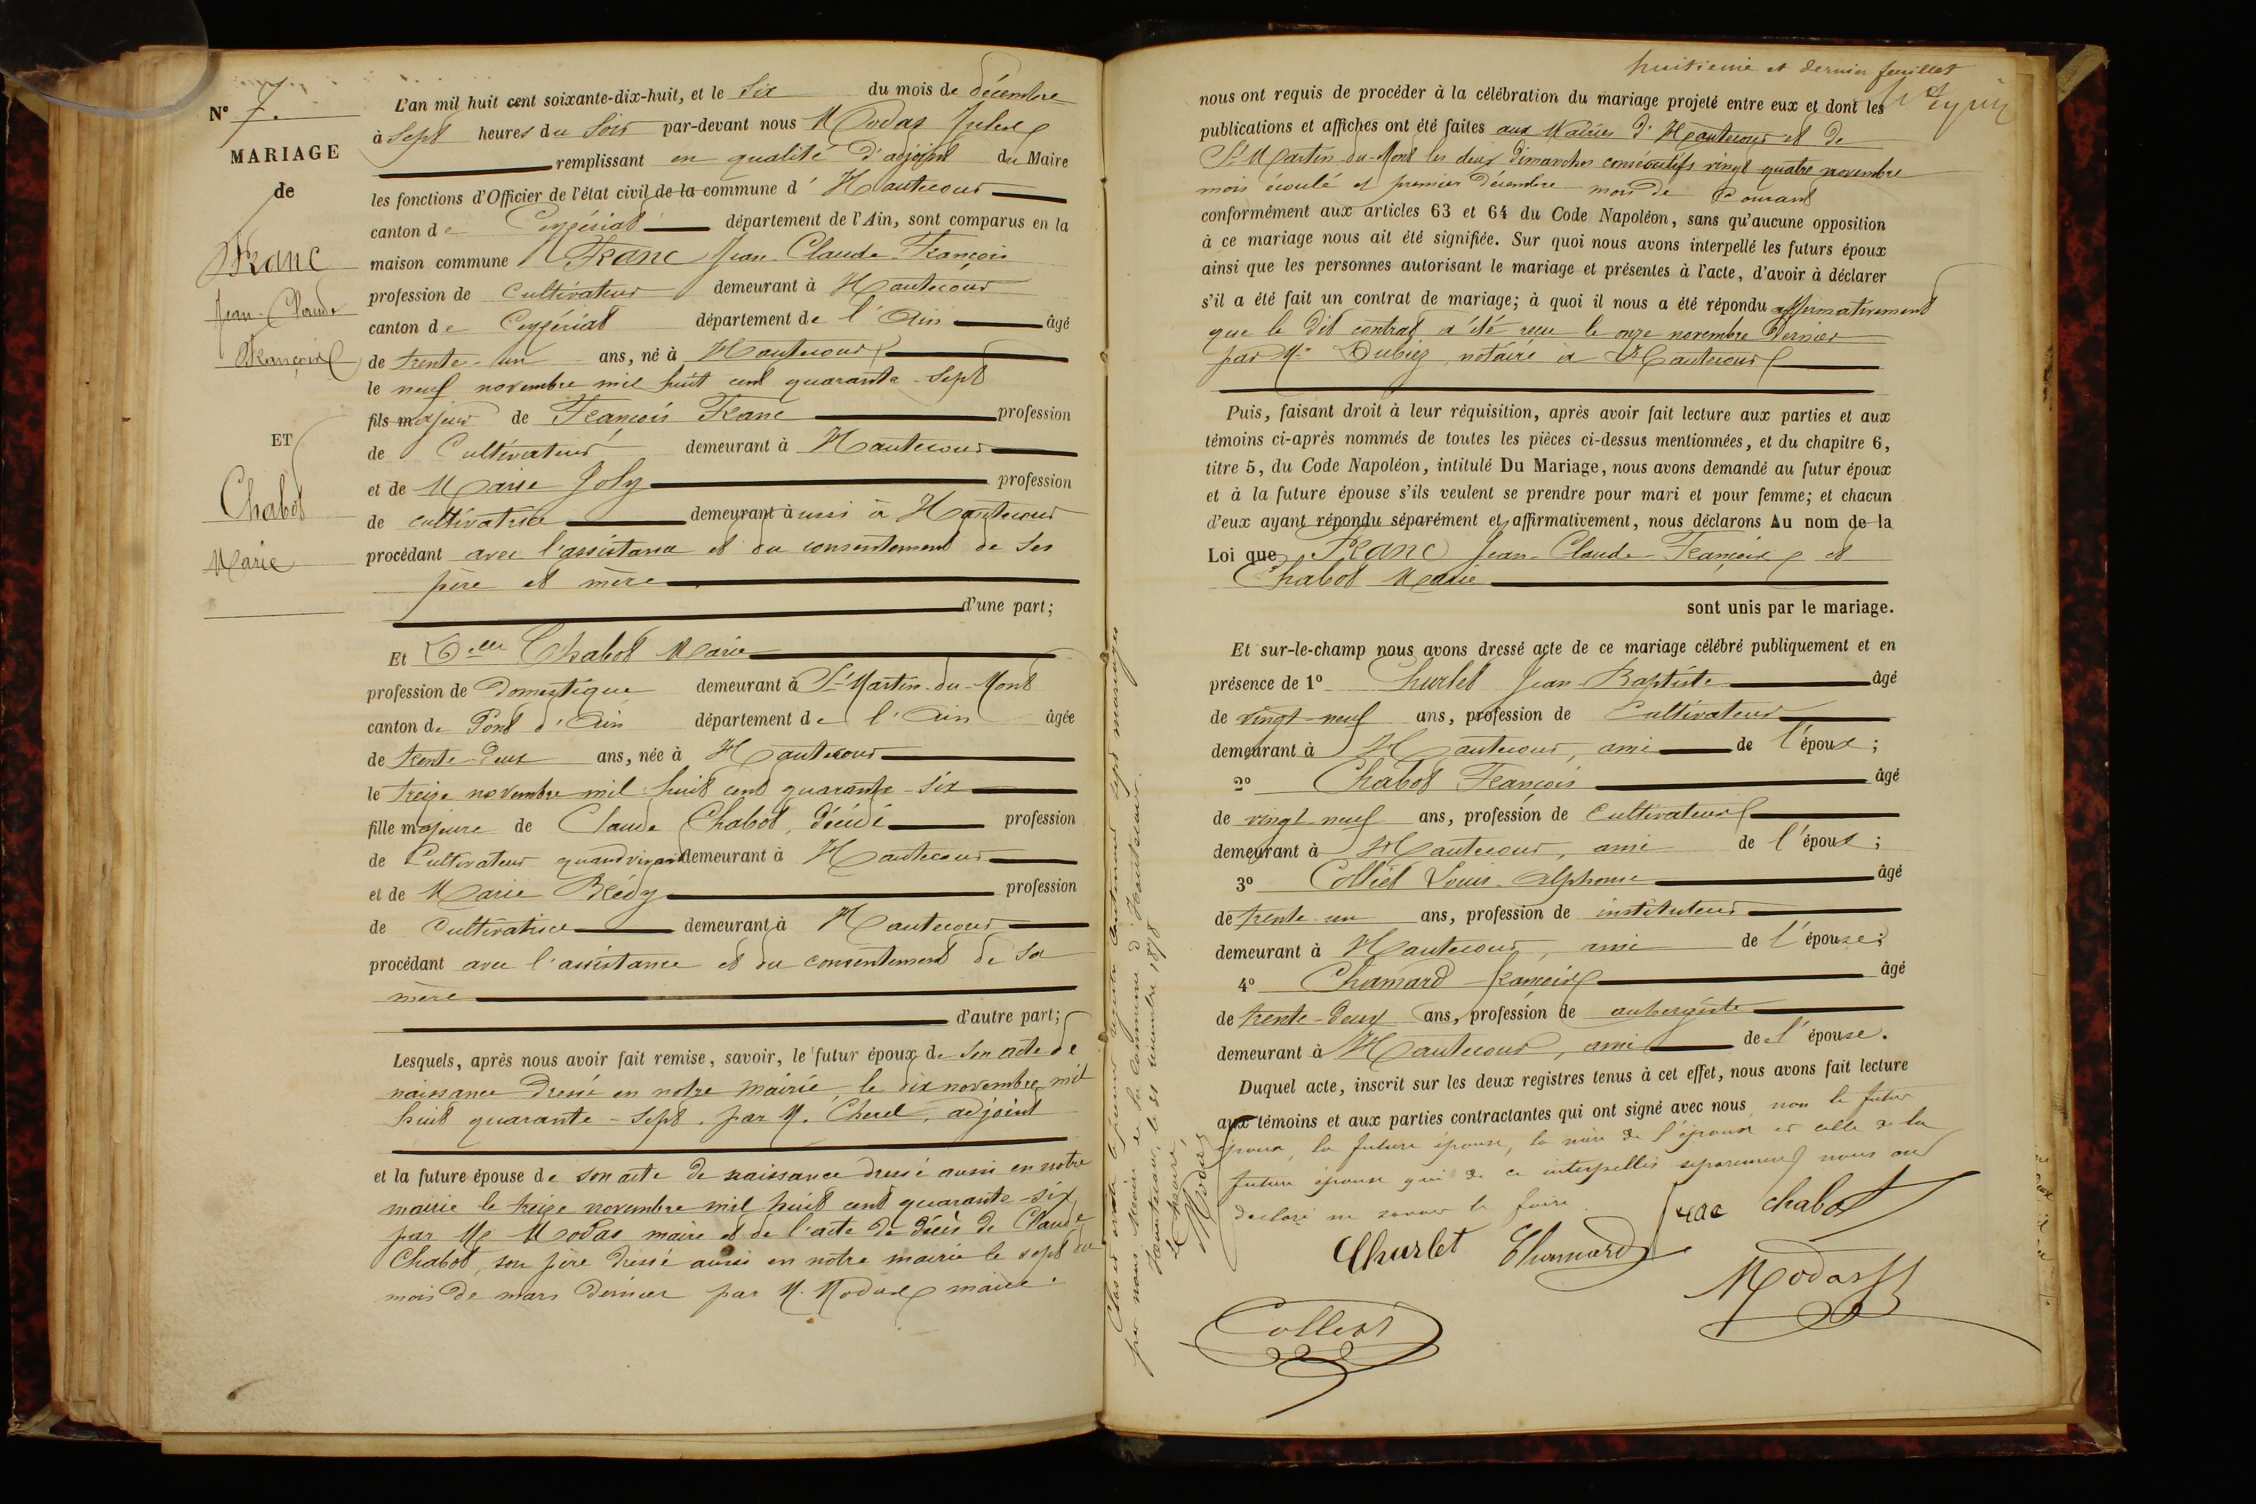 N° 7.
MARIAGE
de
Franc
Jean-Claude
François
ET
Chabot
Marie
L'an mil huit cent soixante-dix-huit, et le Six du mois de décembre
à Sept heures du Soir par-devant nous Modas Jules
remplissant en qualité d'adjoint du Maire
les fonctions d'Officier de l'état civil de la commune d'Hautecour
canton de Ceyzériat département de l'Ain, sont comparus en la
maison commune Franc Jean-Claude-François
profession de Cultivateur demeurant à Hautecour
canton de Ceyzériat département de l'Ain âgé
de trente-un ans, né à Hautecour
le neuf novembre mil huit cent quarante-sept
fils majeur de François Franc profession
de Cultivateur demeurant à Hautecour
et de Marie Joly profession
de cultivatrice demeurant aussi à Hautecour
procédant avec l'assistance et du consentement de ses
père et mère
d'une part;
Et Delle Chabot Marie
profession de Domestique demeurant à St Martin-du-Mont
canton de Pont d'Ain département de l'Ain âgée
de trente-deux ans, née à Hautecour
le treize novembre mil huit cent quarante-six
fille majeure de Claude Chabot, décédé profession
de Cultivateur quand vivant demeurant à Hautecour
et de Marie Blédy profession
de Cultivatrice demeurant à Hautecour
procédant avec l'assistance et du consentement de sa
mère
d'autre part;
Lesquels, après nous avoir fait remise, savoir, le futur époux de son acte de
naissance dressé en notre mairie, le dix novembre mil
huit quarante-sept, par M. Cherel, adjoint
et la future épouse de son acte de naissance dressé aussi en notre
mairie le treize novembre mil huit cent quarante-six
par Mr Modas maire et de l'acte de décès de Claude
Chabot, son père dressé aussi en notre mairie le sept du
mois de mars dernier par M. Modas maire.
huitième et dernier feuillet
nous ont requis de procéder à la célébration du mariage projeté entre eux et dont les
publications et affiches ont été faites aux Mairies d'Hautecour et de
St Martin-du-Mont les deux dimanches consécutifs vingt-quatre novembre
mois écoulé et premier décembre mois de Courant
conformément aux articles 63 et 64 du Code Napoléon, sans qu'aucune opposition
à ce mariage nous ait été signifiée. Sur quoi nous avons interpellé les futurs époux
ainsi que les personnes autorisant le mariage et présentes à l'acte, d'avoir à déclarer
s'il a été fait un contrat de mariage; à quoi il nous a été répondu affirmativement
que le dit contrat a été reçu le onze novembre dernier
par Me Dubiez, notaire à Hautecour
Puis, faisant droit à leur réquisition, après avoir fait lecture aux parties et aux
témoins ci-après nommés de toutes les pièces ci-dessus mentionnées, et du chapitre 6,
titre 5, du Code Napoléon, intitulé Du Mariage, nous avons demandé au futur époux
et à la future épouse s'ils veulent se prendre pour mari et pour femme; et chacun
d'eux ayant répondu séparément et affirmativement, nous déclarons Au nom de la
Loi que Franc Jean-Claude-François et
Chabot Marie
sont unis par le mariage.
Et sur-le-champ nous avons dressé acte de ce mariage célébré publiquement et en
présence de 1° Churlet Jean-Baptiste âgé
de vingt-neuf ans, profession de Cultivateur
demeurant à Hautecour, ami de l'époux;
2° Chabot François âgé
de vingt-neuf ans, profession de Cultivateur
demeurant à Hautecour, ami de l'époux;
3° Colliet Louis-Alphonse âgé
de trente-un ans, profession de instituteur
demeurant à Hautecour, ami de l'épouse;
4° Chamard François âgé
de trente-deux ans, profession de aubergiste
demeurant à Hautecour, ami de l'épouse.
Duquel acte, inscrit sur les deux registres tenus à cet effet, nous avons fait lecture
aux témoins et aux parties contractantes qui ont signé avec nous, non le futur
époux, la future épouse, la mère de l'époux et celle de la
future épouse qui de ce interpellés séparément nous ont
déclaré ne savoir le faire.
Franc Chabot
Churlet Chamard
Modas
Colliet
Clos et arrêté le présent registre contenant sept mariages
par nous Maire de la commune d'Hautecour.
Hautecour, le 31 décembre 1878
Le Maire,
Modas